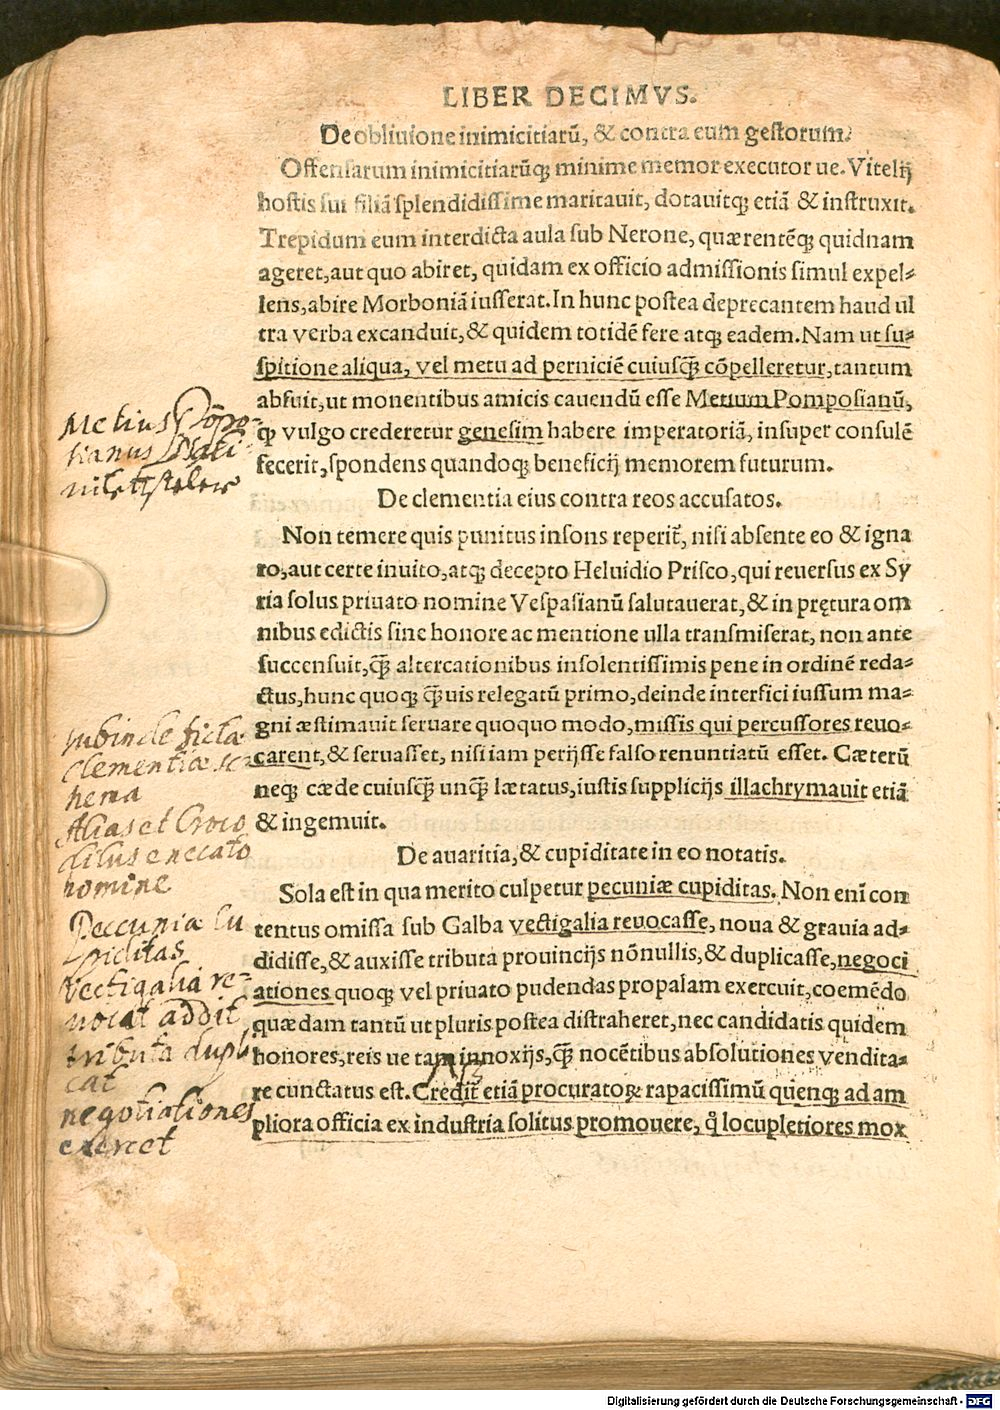 LIBER DECIMVS.
De obliuione inimicitiarũ, & contra eum gestorum.
Offensarum inimicitiarũqꝫ minime memor executor ue. Vitelij
hostis sui filiã splendidissime maritauit, dotauitqꝫ etiã & instruxit.
Trepidum eum interdicta aula sub Nerone, quærentẽqꝫ quidnam
ageret, aut quo abiret, quidam ex officio admissionis simul expel-
lens, abire Morboniã iusserat. In hunc postea deprecantem haud ul
tra verba excanduit, & quidem totidẽ fere atqꝫ eadem. Nam ut su-
spitione aliqua, vel metu ad perniciẽ cuiusq̃ cõpelleretur, tantum
abfuit, ut monentibus amicis cauendũ esse Metium Pomposianũ,
ꝙ vulgo crederetur genesim habere imperatoriã, insuper consulẽ
fecerit, spondens quandoqꝫ beneficij memorem futurum.
Metius Põpo-
sianus
De clementia eius contra reos accusatos.
Non temere quis punitus insons reperit᷑, nisi absente eo & igna
ro, aut certe inuito, atqꝫ decepto Heluidio Prisco, qui reuersus ex Sy
ria solus priuato nomine Vespasianũ salutauerat, & in prętura om
nibus edictis sine honore ac mentione ulla transmiserat, non ante
succensuit, q̃ altercationibus insolentissimis pene in ordinẽ reda-
ctus, hunc quoqꝫ q̃uis relegatũ primo, deinde interfici iussum ma-
gni æstimauit seruare quoquo modo, missis qui percussores reuo-
carent, & seruasset, nisi iam perijsse falso renuntiatũ esset. Cæterũ
neqꝫ cæde cuiusq̃ unq̃ lætatus, iustis supplicijs illachrymauit etiã
& ingemuit.
subinde ficta
clementiæ sc-
hema
Alias et Croco
dilus enecato
homine
De auaritia, & cupiditate in eo notatis.
Sola est in qua merito culpetur pecuniæ cupiditas. Non enĩ con
tentus omissa sub Galba vectigalia reuocasse, noua & grauia ad-
didisse, & auxisse tributa prouincijs nõnullis, & duplicasse, negoci
ationes quoqꝫ vel priuato pudendas propalam exercuit, coemẽdo
quædam tantũ ut pluris postea distraheret, nec candidatis quidem
honores, reis ue tam innoxijs, q̃ nocẽtibus absolutiones vendita-
re cunctatus est. Credit᷑ etiã procuratoꝝ rapacissimũ quẽnqꝫ ad am
pliora officia ex industria solitus promouere, q̊ locupletiores mox
Peccunia Cu
piditas
Vectigalia re-
uocat addit
tributa dupli
cat
negotiationes
exercet
Digitalisierung gefördert durch die Deutsche Forschungsgemeinschaft - DFG